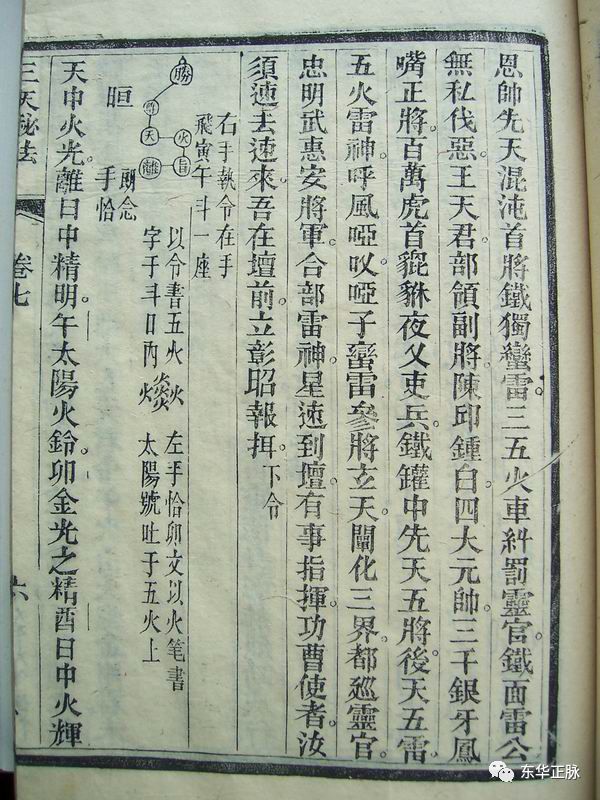 恩帥先天混沌首將鐵獨蠻雷三五火車糾罰靈官鐵面雷公
無私伐惡王天君部領副將陳邱鍾白四大元帥三千銀牙鳳
嘴正將百萬虎首貔貅夜叉吏兵鐵罐中先天五將後天五雷
五火雷神呼風啞叹啞子蠻雷參將玄天闡化三界都廵靈官
忠明武惠安將軍合部雷神星速到壇有事指揮功曹使者汝
須速去速來吾在壇前立彰昭報挕下令
右手執令在手
飛寅午斗一座
以令書五火
左手恰卯文以火笔書
字于斗口內
太陽號吐于五火上
勝
天
火
離
晅
手恰
天中火光離日中精明午太陽火鈴卯金光之精酉日中火輝
三天秘法
卷七
六
东华正脉